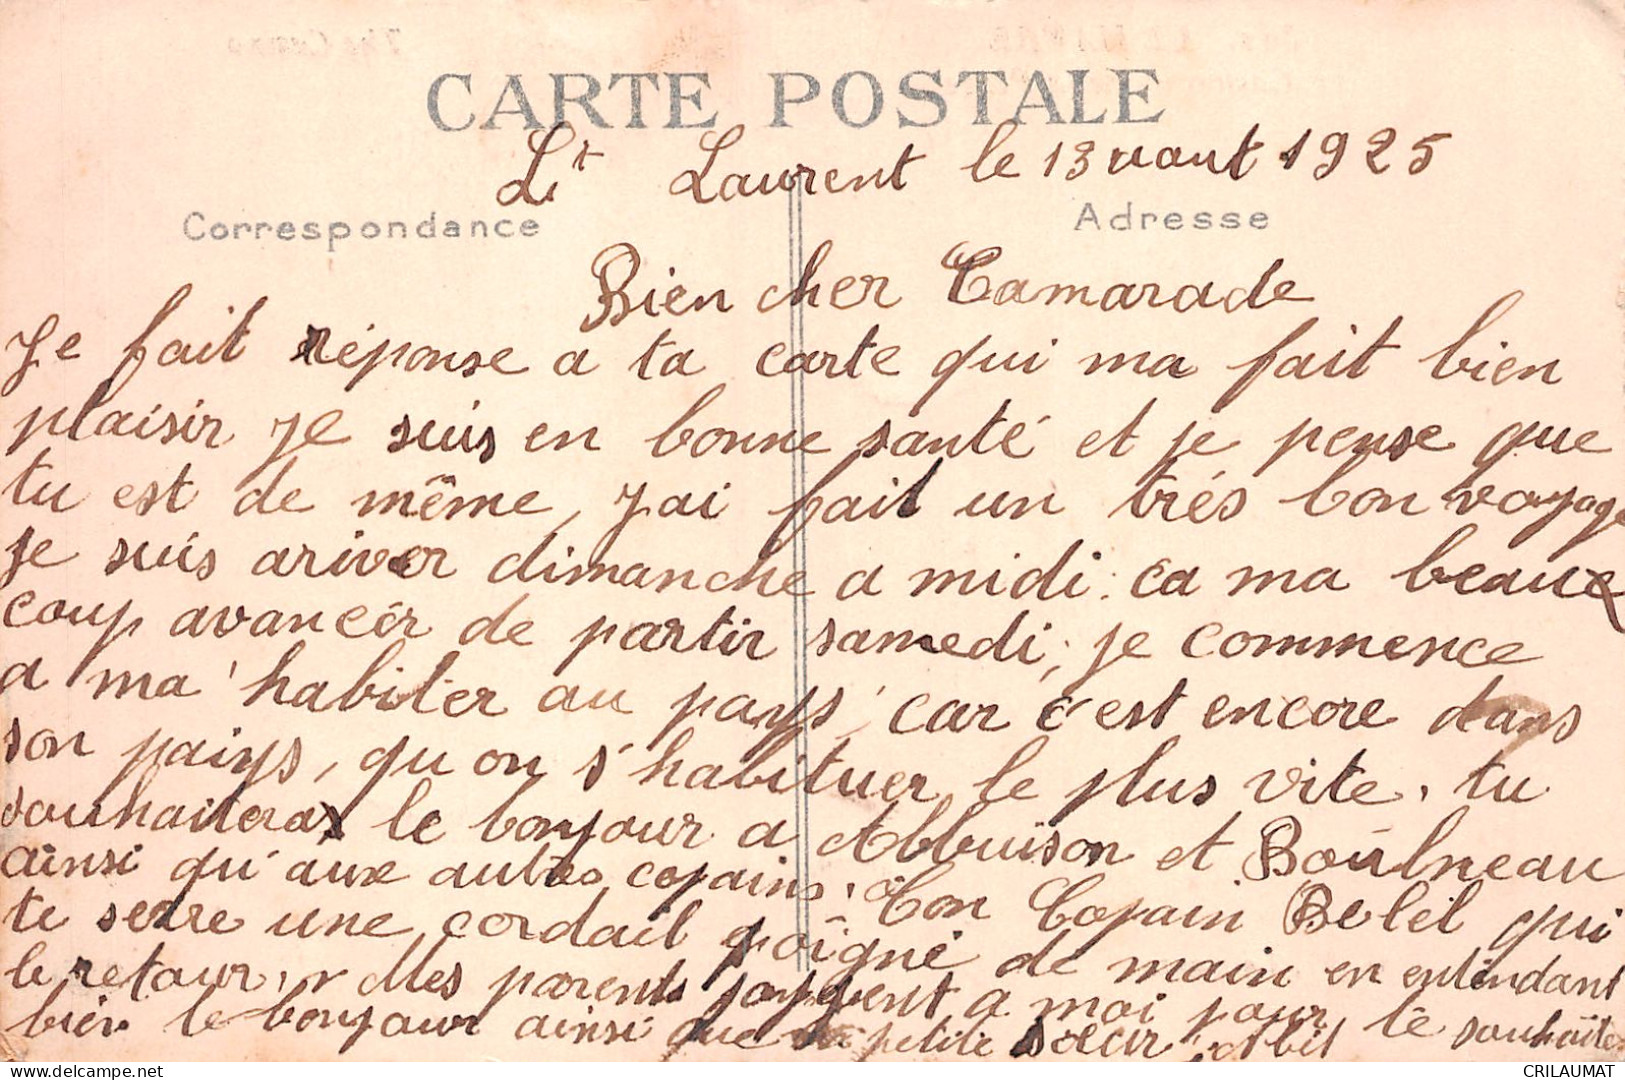 CARTE POSTALE
St Laurent le 13 aout 1925
Correspondance
Adresse
Bien cher Camarade
Je fait réponse a ta carte qui ma fait bien
plaisir je suis en bonne santé et je pense que
tu est de même, j'ai fait un trés bon voyage
je suis ariver dimanche a midi. ca ma beaux
coup avancér de partir samedi, je commence
a ma'habiter au pays, car c'est encore dans
son paiys, qu on s'habituer le plus vite, tu
souhaiteras le bonjour a Abbuison et Boulneau
ainsi qu'aux autres copains, Ton Copain Belel qui
te serre une cordail poigné de main en entendant
le retour, Mes parents joignent a moi pour te souhaite
bien le bonjour ainsi que petite sœur Abil
CRILAUMAT